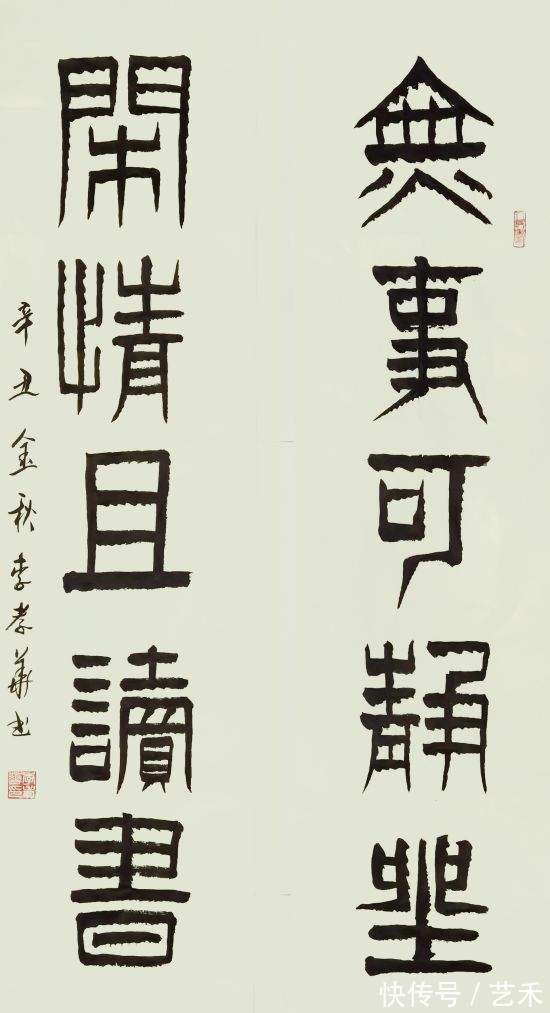 無事可靜坐
閑情且讀書
辛丑金秋李孝華书
快传号/艺禾